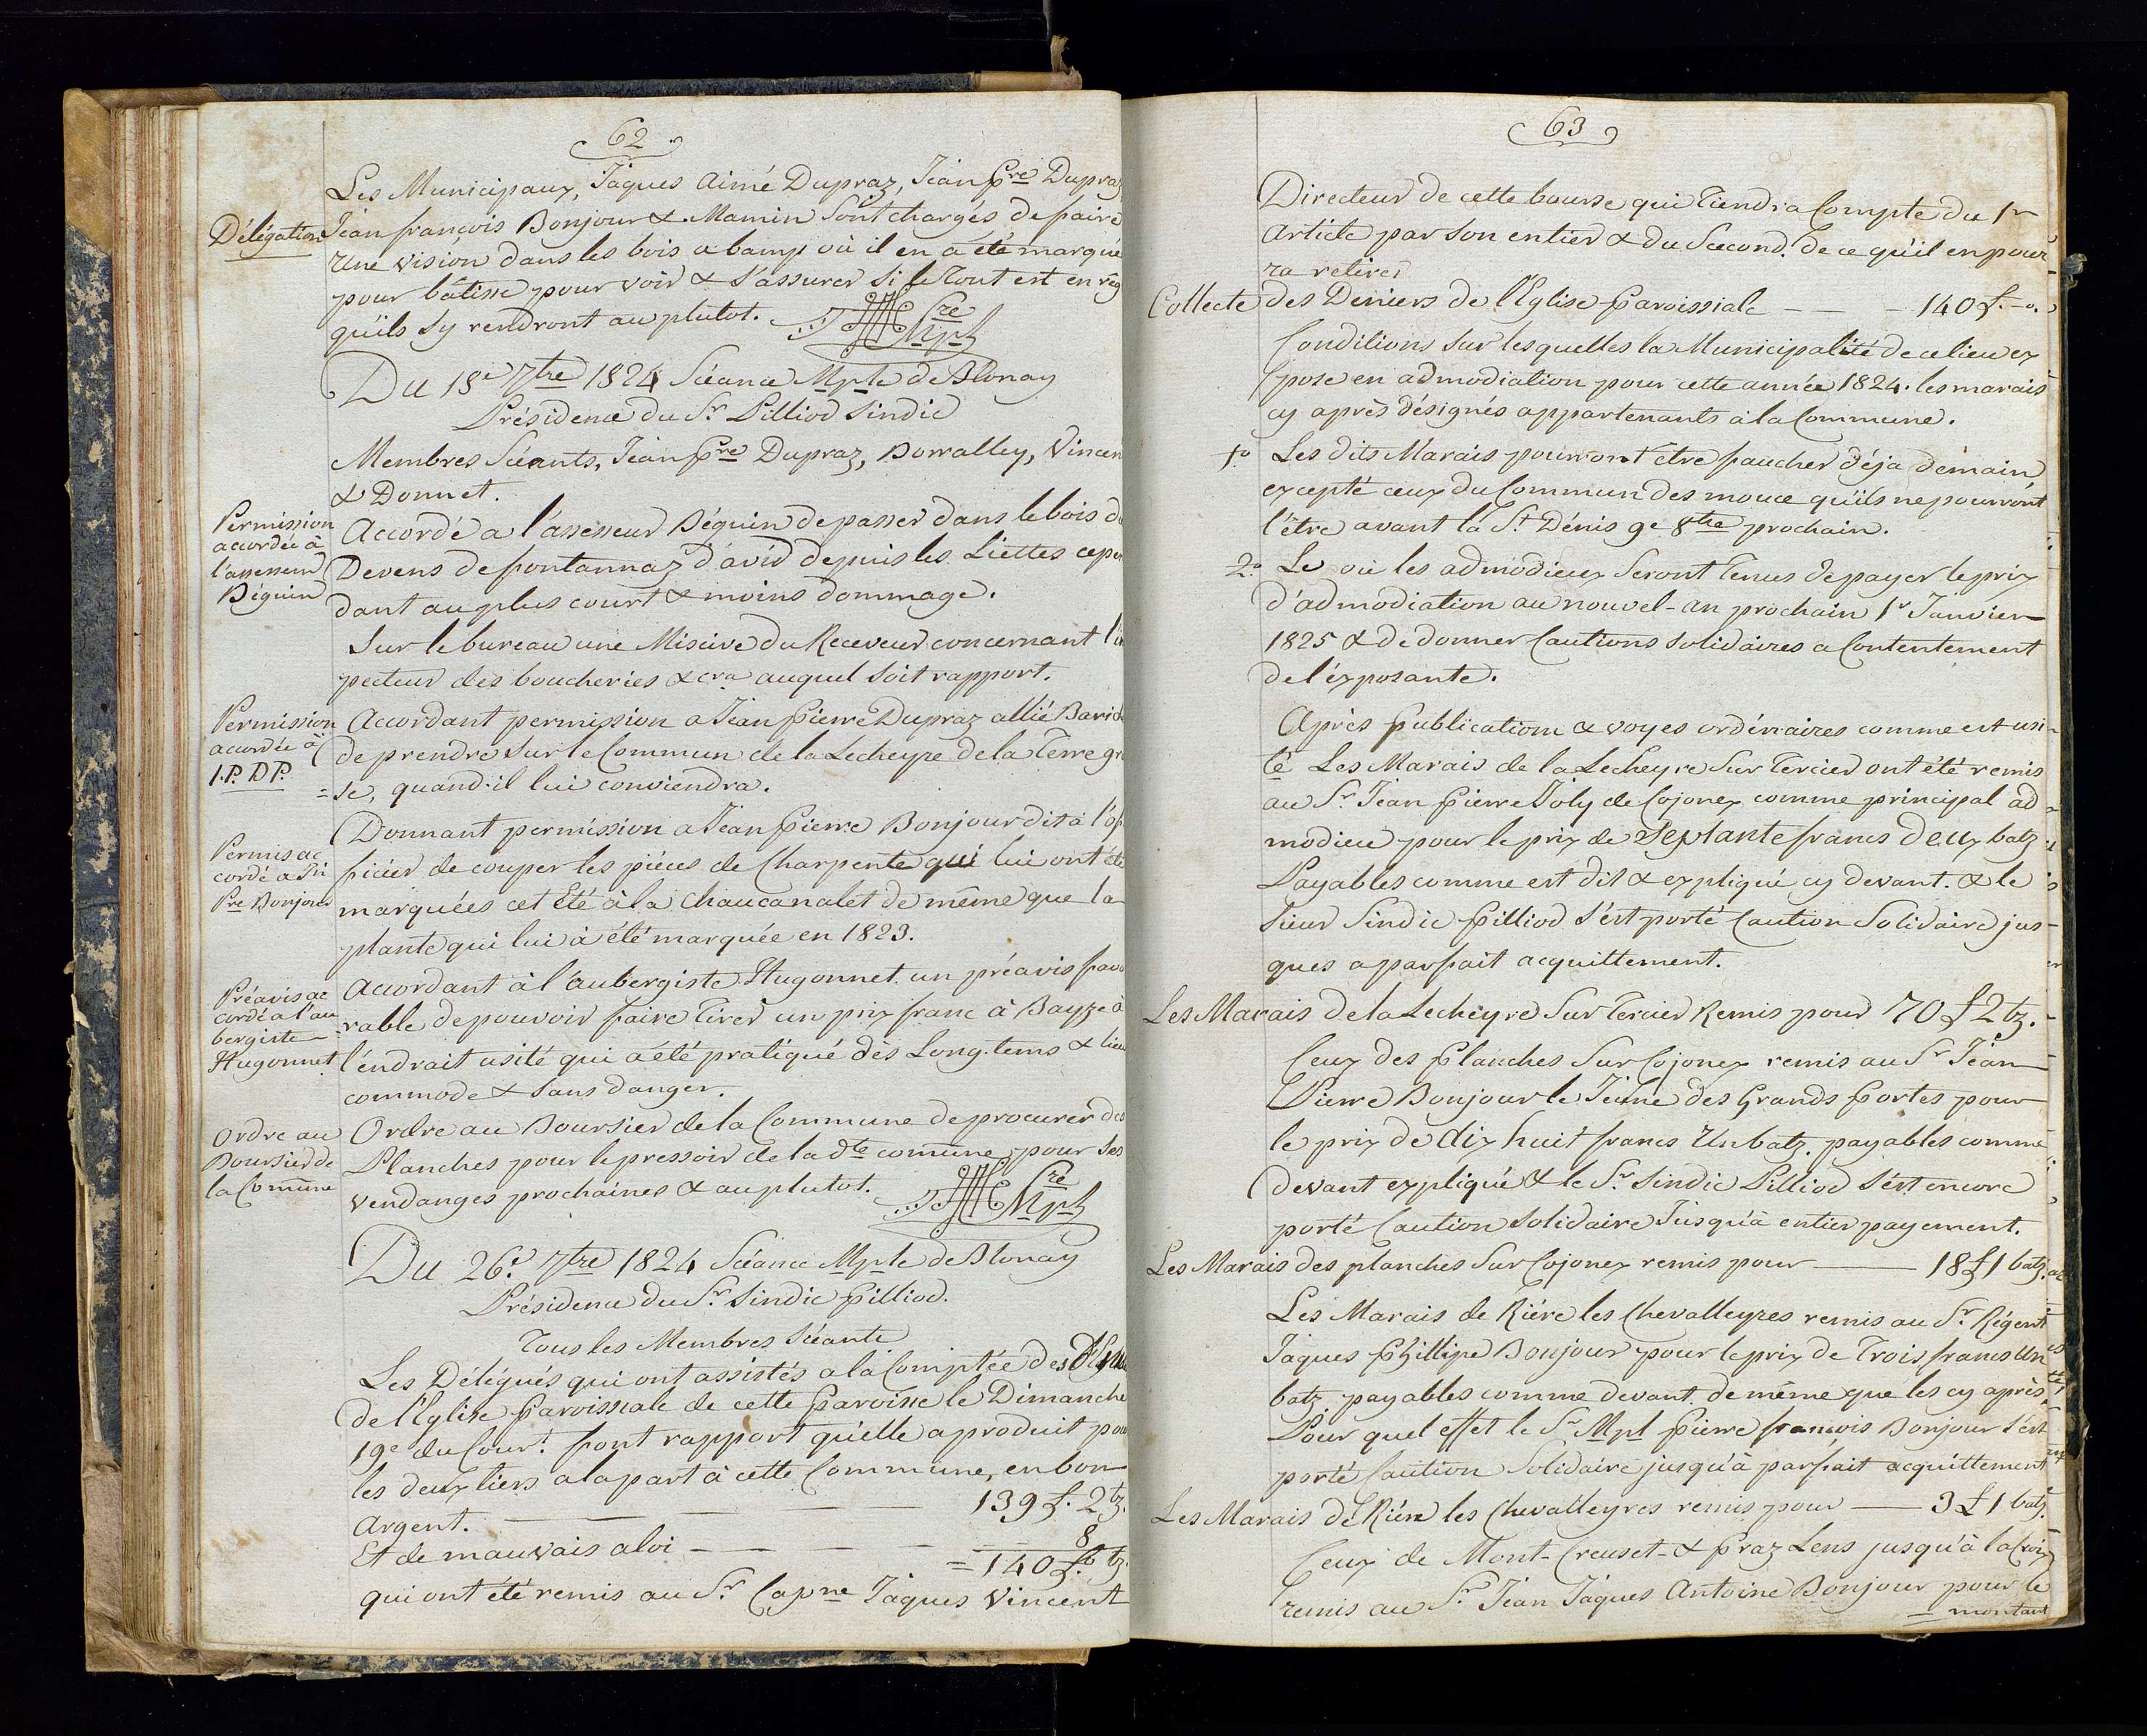 62
Les Municipaux, Jaques Aimé Dupraz, Jean Pre Dupraz
Délégation
Jean françois Bonjour & Mamin Sont chargés de faire
Une vision dans les bois a bamp où il en a été marqué
pour bâtisse pour voir & s'assurer Si le tout est en règ
qu'ils s'y rendront au plutot.
Sre
Mpl
Du 18e 7bre 1824 Séance Mple de Blonay
Présidence du Sr. Pilliod Sindic
Membres Séants, Jean Pre Dupraz, Borralley, Vincen
& Donnet.
Permission
accordée à
l'assesseur
Béguin
Accordé a l'assesseur Béguin de passer dans le bois d
Devens de fontannaz d'avid depuis les Liettes cepen
dant au plus court & moins dommage.
Sur le bureau une Miscive du Receveur concernant l'in
pecteur des boucheries & cra auquel soit rapport.
Permission
accordée à
J.P. DP.
Accordant permission a Jean Pierre Dupraz allié Barid
de prendre sur le Commun de la Lecheyre de la Terre gr
=se, quand-il lui conviendra.
Permis ac
cordé a Jn
Pre Bonjour
Donnant permission a Jean Pierre Bonjour dit à l'of
ficier de couper les piéces de Charpente qui lui ont été
marquées cet Été à la Chaucanalet de même que la
plante qui lui à été marquée en 1823.
Préavis ac
cordé a l'au
bergiste
Hugonnet
Accordant à l'aubergiste Hugonnet un préavis favo
rable de pouvoir faire Tirer un prix franc à Bayze à
l'endrait usité qui a été pratiqué dès Long-tems & lieu
commode & sans danger.
Ordre au
Boursier de
la Comune
Ordre au Boursier de la Commune de procurer des
Planches pour le pressoir de la dte comune, pour les
vendanges prochaines & au plutot.
Sre
Mpl
Du 26e. 7bre 1824 Séance Mple de Blonay
Présidence du Sr. Sindic Pilliod.
Tous les Membres Séants
Les Délégués qui ont assistés a la Comptée des
de l'Eglise Paroissiale de cette Paroisse le Dimanche
19e du Court. font rapport qu'elle a produit pou
les deux tiers a la part à cette Commune, en bon
Argent. — — — — 139 £. 2 bz.
Et de mauvais aloi — — — — 8
= 140 £. bz.
qui ont été remis au Sr Capne Jaques Vincent
63
Directeur de cette bourse qui Tiendra Compte du 1r
article par son entier & du Second. de ce qu'il en pour
ra retirer
Collecte des Deniers de l'Eglise Paroissiale — — — 140 £. - 0.
Conditions sur lesquelles la Municipalité de ce lieu ex
pose en admodiation pour cette année 1824. les marais
cy après désignés appartenants à la Commune.
1o. Les dits Marais pourront être faucher déja démain
excepté ceux du Commun des mouce qu'ils ne pourront
l'être avant la St Dénis 9e 8bre prochain.
2o. Le où les admodieux Seront Tenus de payer le prix
d'admodiation au nouvel-an prochain 1r Janvier
1825 & de donner Cautions solidaires a Contentement
de l'exposante.
Après Publication & voyes ordénaires comme est usi-
té Les Marais de la Lecheyre sur Tercier ont été remis
au Sr Jean Pierre Joly de Cojonex comme principal ad
modieu pour le prix de Septante francs deux batz
Payables comme est dit & expliqué cy devant. & le
Sieur Sindic Pilliod s'est porté Caution Solidaire jus-
ques a parfait acquittement.
Les Marais de la Lecheyre Sur Tercier Remis pour 70 £ 2 bz.
Ceux des Planches Sur Cojonex remis au Sr Jean
Pierre Bonjour le Jeune des Grands Portes pour
le prix de dix huit francs Un batz. payables comme
devant expliqué & le Sr. Sindic Pilliod s'est encore
porté Caution Solidaire Jusqu'à entier payement.
Les Marais des planches Sur Cojonex remis pour —— 18 £ 1 batz.
Les Marais de Riére les Chevalleyres remis au Sr. Régent
Jaques Phillipe Bonjour pour le prix de Trois francs Un
batz payables comme devant de même que les cy après
Pour quel effet le Sr Mpl Pierre françois Bonjour s'est
porté Caution Solidaire jusqu'à parfait acquittement
Les Marais de Riére les Chevalleyres remis pour —— 3 £ 1 batz.
Ceux de Mont-Creuset- & Praz Lens jusqu'à la Croix
remis au Sr. Jean Jaques Antoine Bonjour pour le
= montant